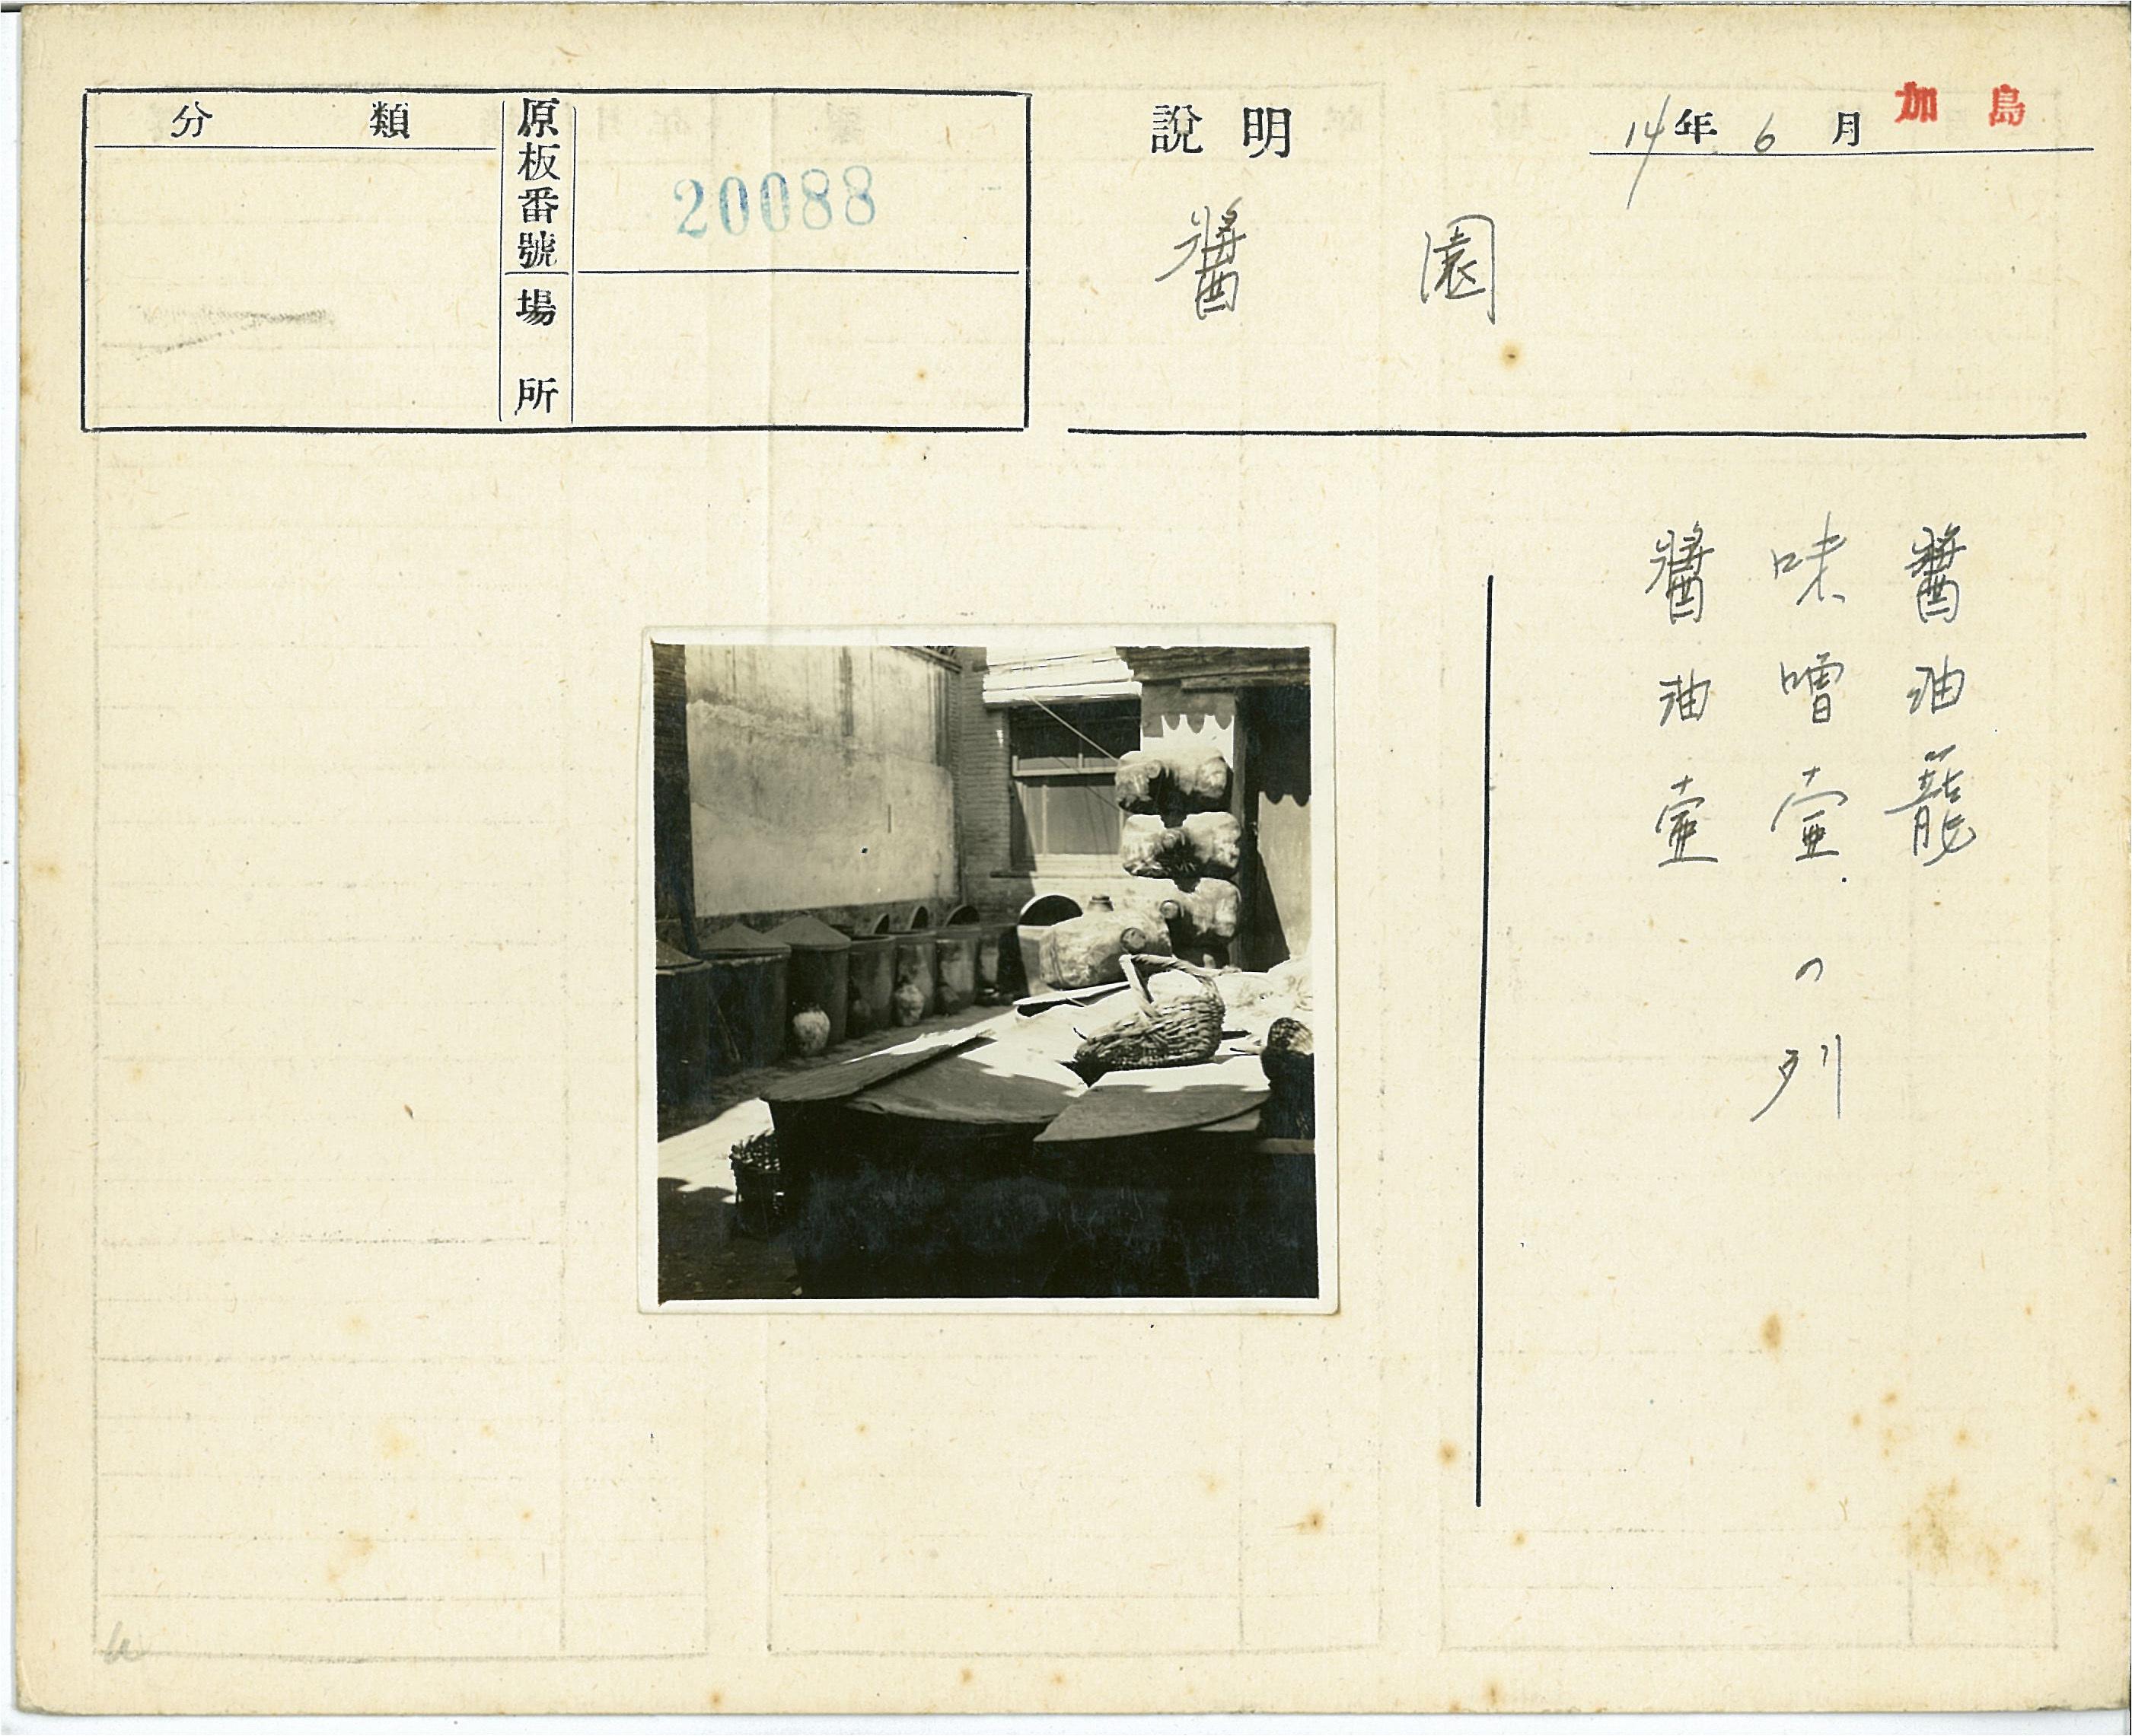 分類
原板番號
20088
場所
說明
14年6月
加島
醬園
醬油籠
味噌壷.の列
醬油壷